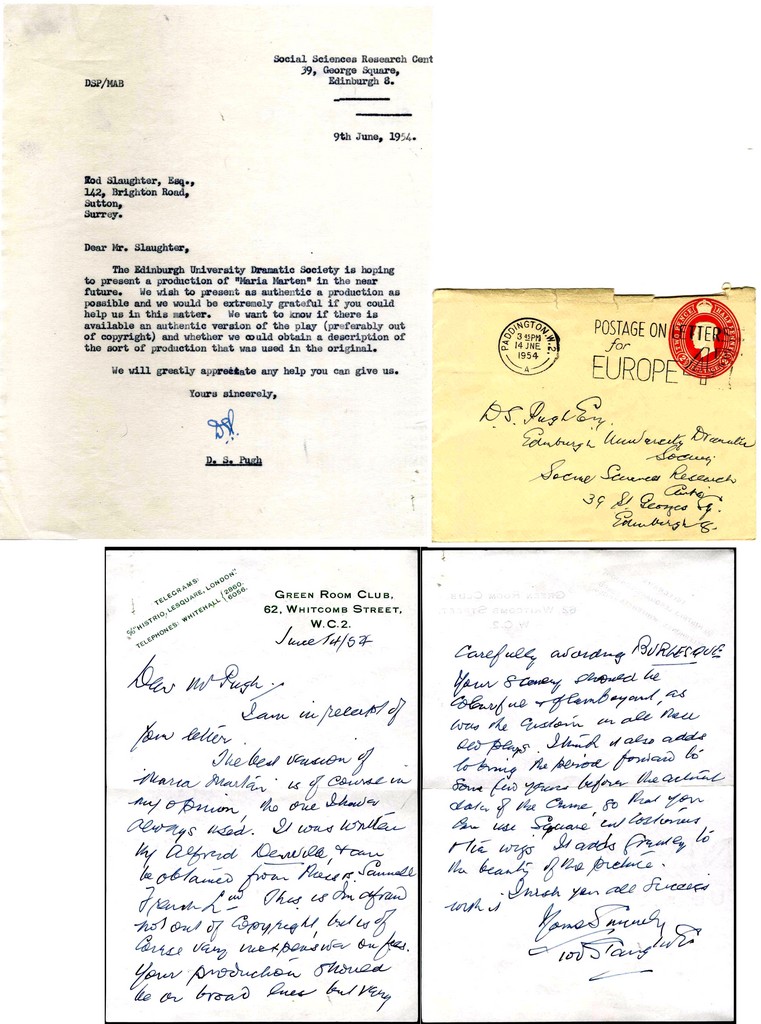 Social Sciences Research Cent
39, George Square,
Edinburgh 8.
DSP/MAB
9th June, 1954.
Tod Slaughter, Esq.,
142, Brighton Road,
Sutton,
Surrey.
Dear Mr. Slaughter,
The Edinburgh University Dramatic Society is hoping
to present a production of "Maria Marten" in the near
future. We wish to present as authentic a production as
possible and we would be extremely grateful if you could
help us in this matter. We want to know if there is
available an authentic version of the play (preferably out
of copyright) and whether we could obtain a description of
the sort of production that was used in the original.
We will greatly appreciate any help you can give us.
Yours sincerely,
D. S. Pugh
PADDINGTON. W.2.
3 PM
14 JNE
1954
A
POSTAGE ON LETTERS
for
EUROPE 4
D. S. Pugh Esq.
Edinburgh University Dramatic
Society
Social Sciences Research
Centre
39 St Georges Sq.
Edinburgh 8.
TELEGRAMS:
"HISTRIO, LESQUARE, LONDON."
TELEPHONES: WHITEHALL 2860.
6056.
GREEN ROOM CLUB,
62, WHITCOMB STREET,
W.C.2.
June 14/54
Dear Mr Pugh.
I am in receipt of
your letter.
The best version of
"Maria Martin" is of course in
my opinion, the one I have
always used. It was written
by Alfred Denville, & can
be obtained from Messrs. Samuel
French Ltd. This is I'm afraid
not out of Copyright, but is of
course very inexpensive on fees.
Your production should
be on broad lines but very
carefully avoiding BURLESQUE
Your scenery should be
colourful & flamboyant, as
was the custom in all these
old plays. I think it also adds
to bring the period forward to
some few years before the actual
date of the Crime, so that you
can use Square cut costumes
& tie wigs. It adds greatly to
the beauty of the picture.
I wish you all success
with it
Yours Sincerely
Tod Slaughter